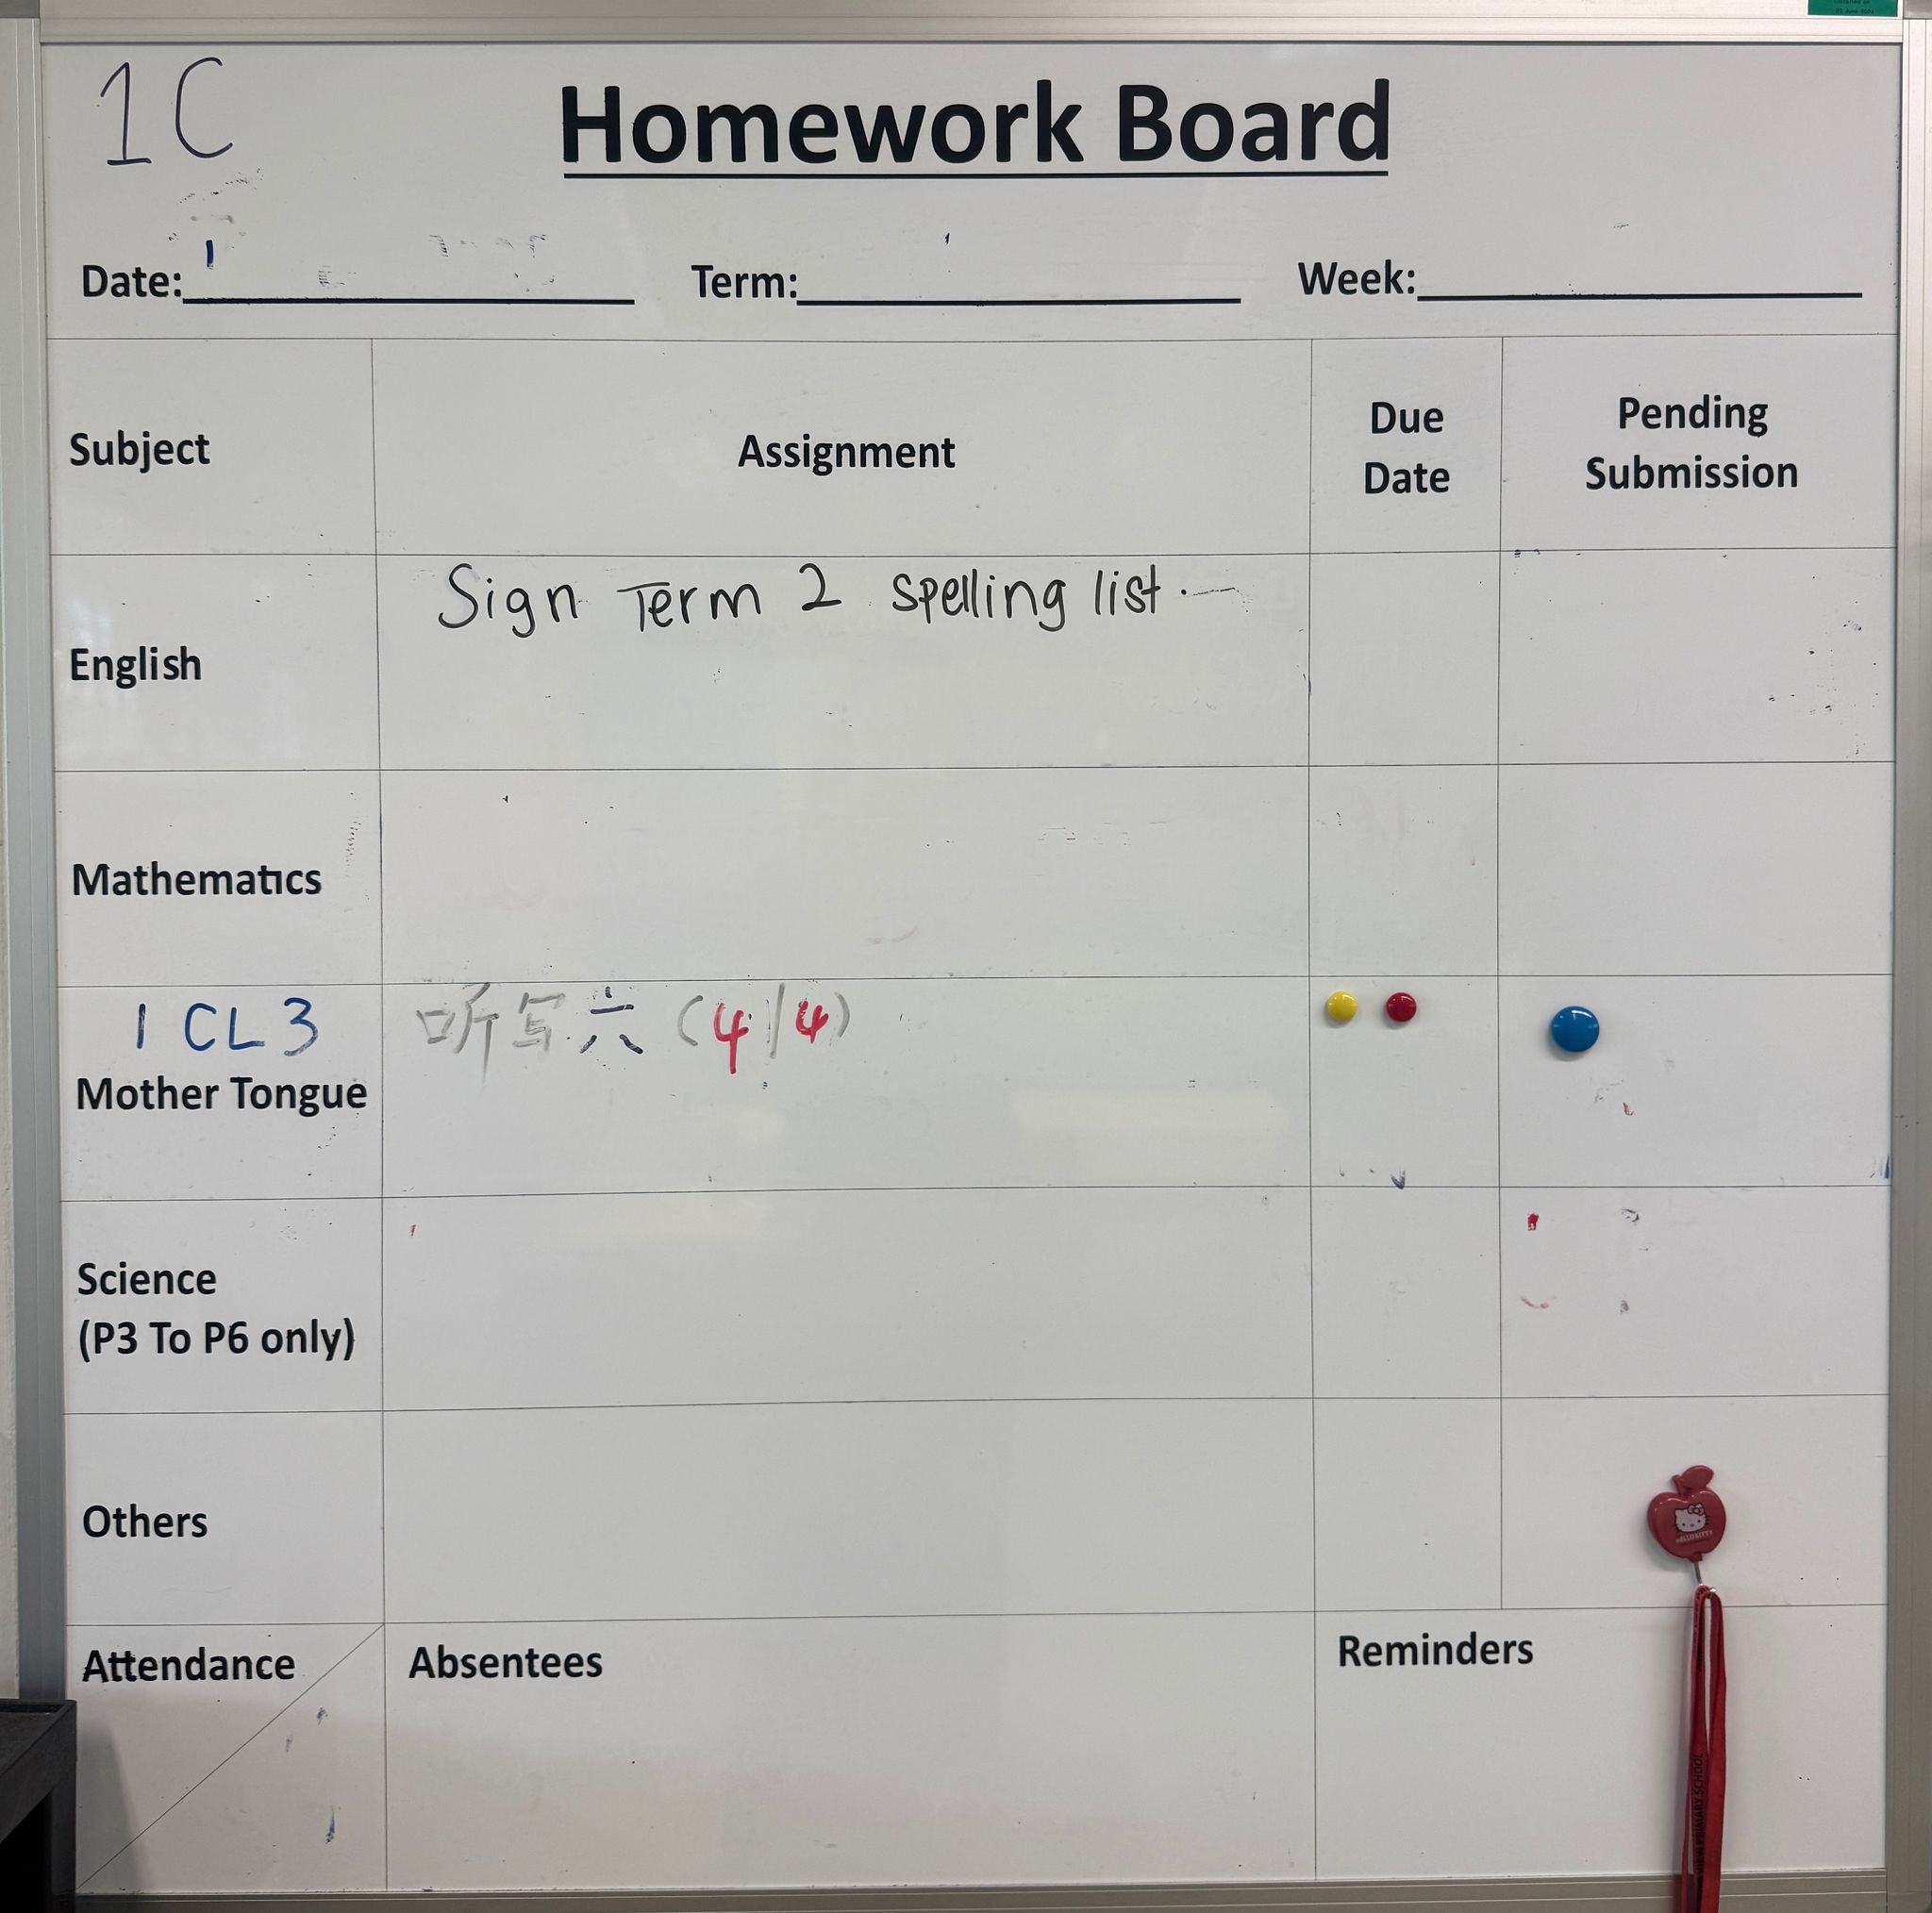 1C
Homework Board
Date: Term: Week:
Subject
Assignment
Due
Date
Pending
Submission
English
Sign Term 2 spelling list.
Mathematics
1 CL 3
Mother Tongue
听写六 (4/4)
Science
(P3 To P6 only)
Others
HELLO KITTY
Attendance
Absentees
Reminders
VIEW PRIMARY SCHOOL